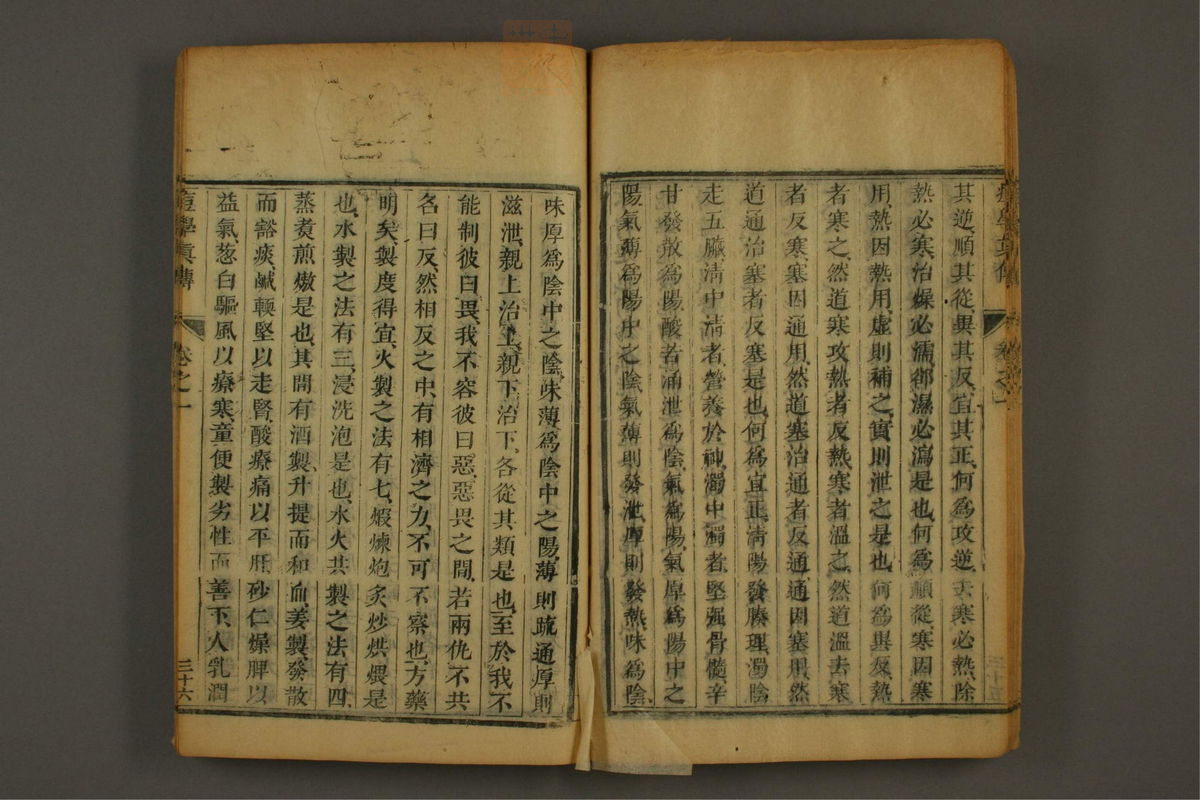 其逆、順其從、異其反、宜其正、何爲攻逆、去寒必熱、除
熱必寒、治燥必濡、御濕必瀉是也、何爲順從寒因寒
用、熱因熱用、虛則補之、實則泄之是也、何爲異反、熱
者寒之、然道寒攻熱者反熱、寒者溫之、然道溫去寒
者反寒、塞因通用、然道塞治通者反通、通因塞用、然
道通治塞者反塞是也、何爲宜正、淸陽發腠理、濁陰
走五臟、淸中淸者、營養於神、濁中濁者、堅强骨髓、辛
甘發散爲陽、酸苦涌泄爲陰、氣爲陽、氣厚爲陽中之
陽、氣薄爲陽中之陰、氣薄則發泄、厚則發熱、味爲陰、
味厚爲陰中之陰、味薄爲陰中之陽、薄則疏通、厚則
滋泄、親上治上、親下治下、各從其類是也、至於我不
能制彼曰畏、我不容彼曰惡、惡畏之間、若兩仇不共
名曰反、然相反之中、有相濟之力、不可不察也、方藥
明矣、製度得宜、火製之法有七、煆煉炮炙炒烘煨是
也、水製之法有三、浸洗泡是也、水火共製之法有四、
蒸煑煎熬是也、其間有酒製、升提而和血、姜製、發散
而豁痰、鹹輭堅以走腎、酸療痛以平肝、砂仁燥脾以
益氣、葱白驅風以療寒、童便製劣性而善下、人乳潤
痘學眞傳
卷之一
三十六